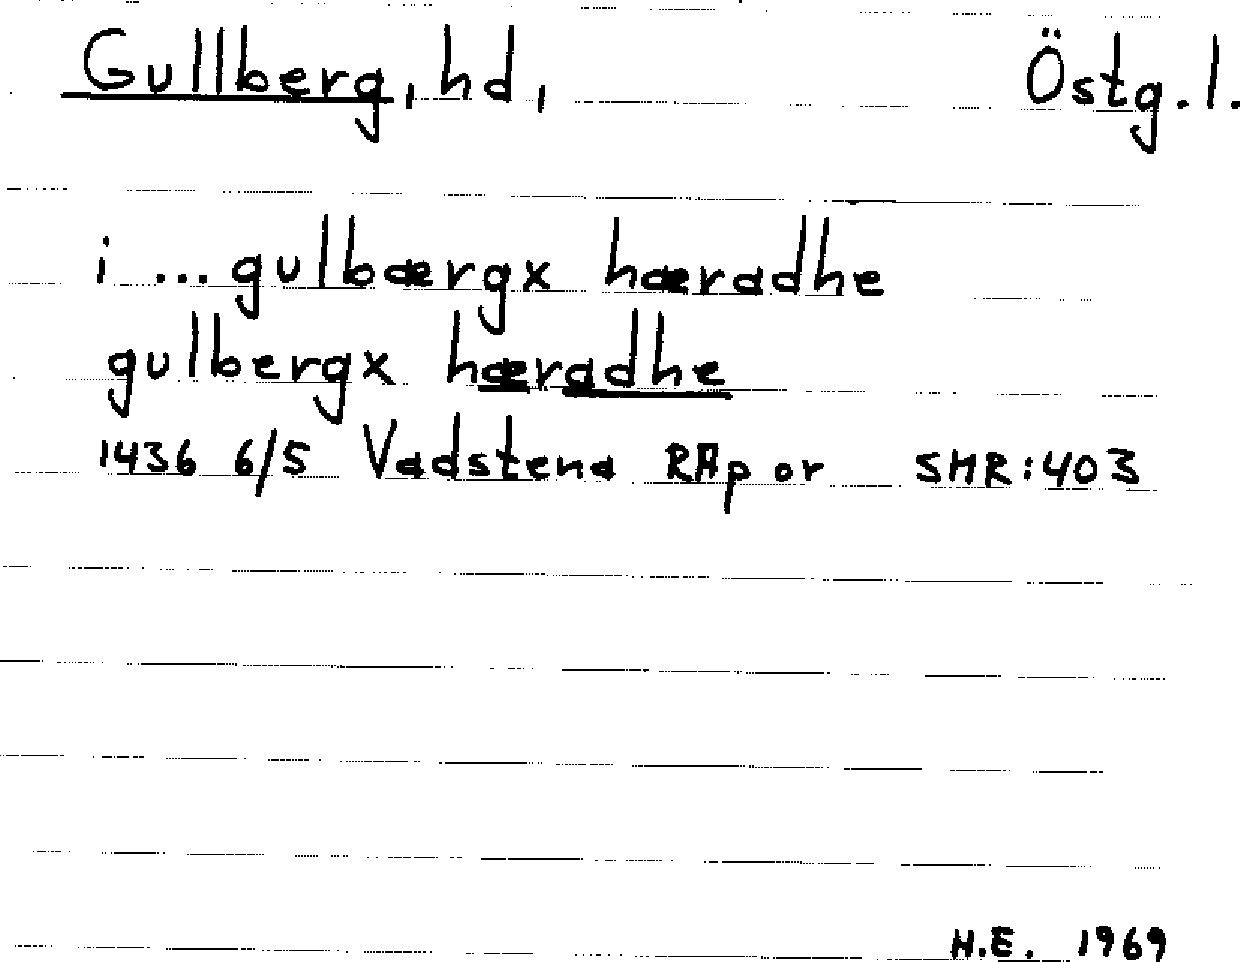 Gullberg, hd, Östg. l.
i ... gulbærgx hæradhe
gulbergx hæradhe
1436 6/5 Vadstena RAp or SMR:403
H.E. 1969